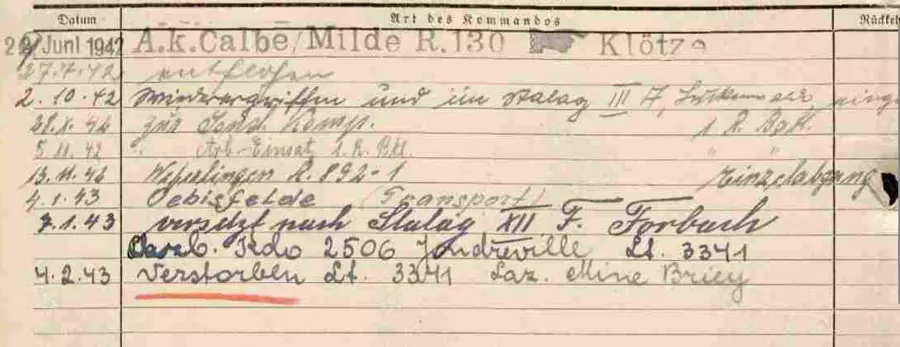 Datum Art des Kommandos Rückkeh
Juni 1942 A.k.Calbe/Milde R.130 Klötze
27.7.42 entflohen
2.10.42 Wiederergriffen und im Stalag III A, Luckenwalde, einge
zur Sond. Komp. 1. R. Bgtl.
5.11.42 " Arb-Einsat 1. R. Btl. " "
Weferlingen R. 892-1 Einzelabgang
4.1.43 Oebisfelde (Transport)
7.1.43 versetzt nach Stalag XII F. Forbach
Kdo 2506 Jondreville Lt. 3341
4.2.43 Verstorben Lt. 3341 Laz. Mine Briey